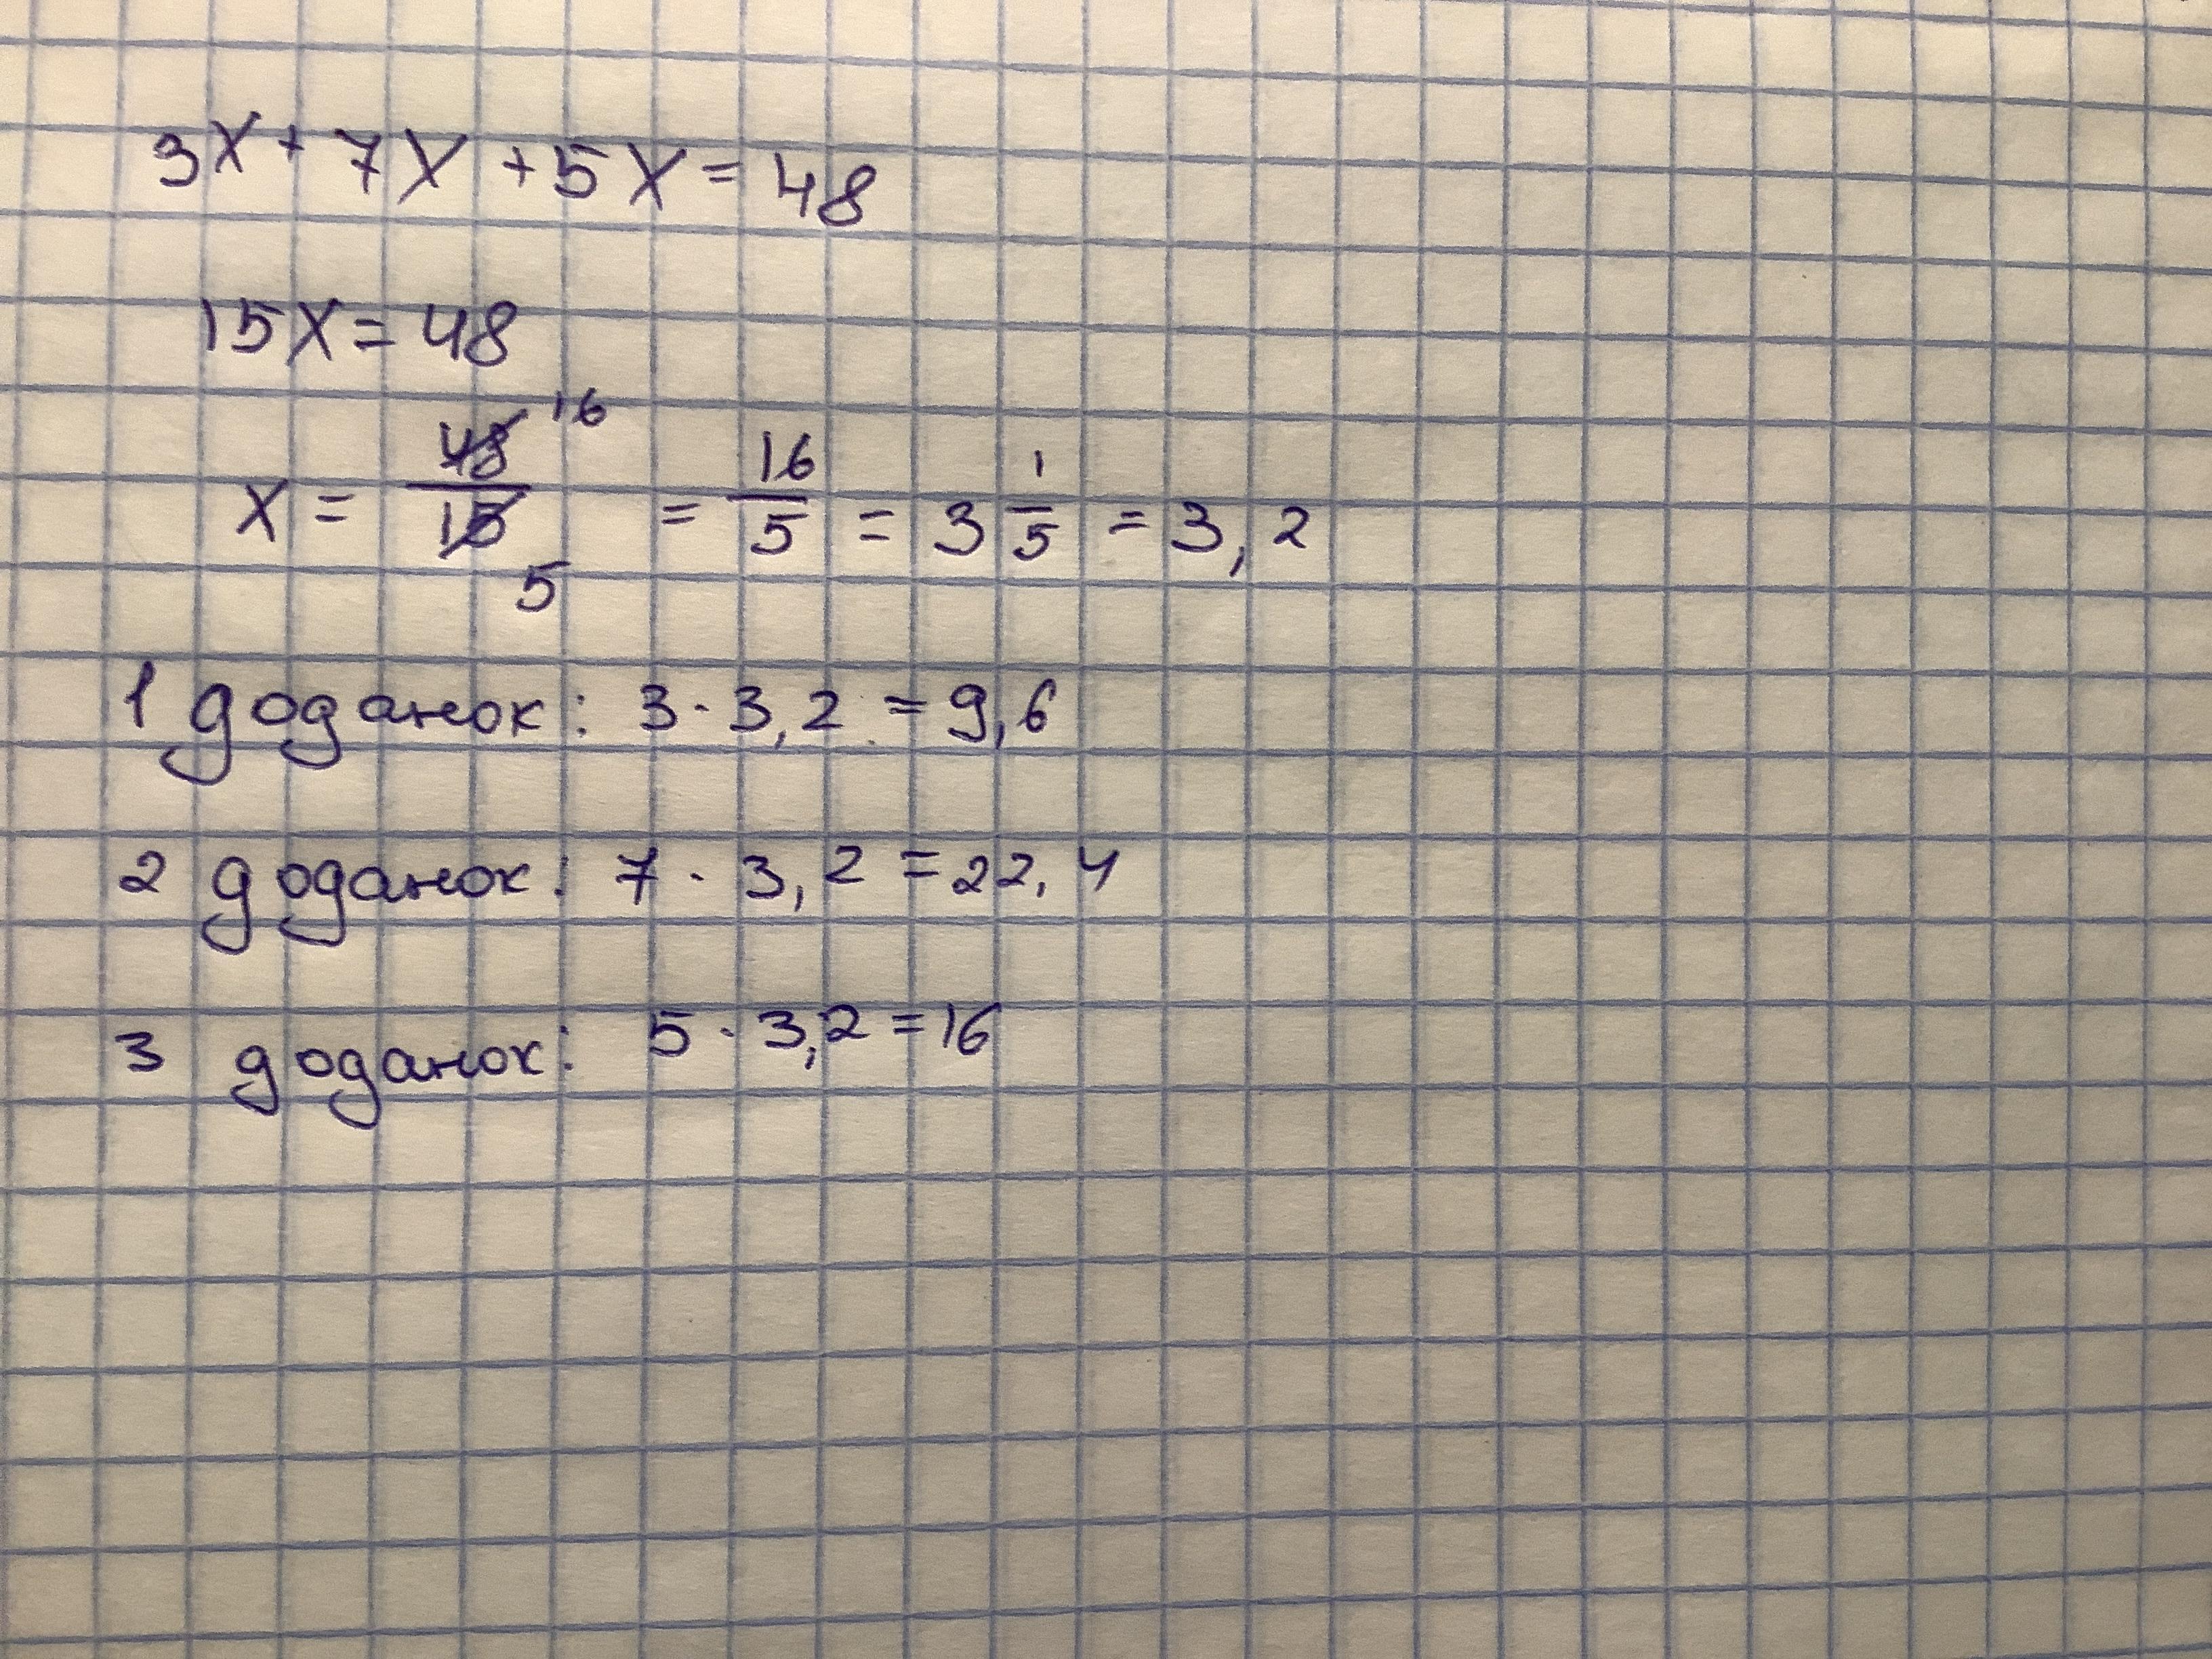 3x + 7x + 5x = 48
15x = 48
x = 48/15 16 5 = 16/5 = 3 1/5 = 3,2
1 доданок: 3 · 3,2 = 9,6
2 доданок: 7 · 3,2 = 22,4
3 доданок: 5 · 3,2 = 16